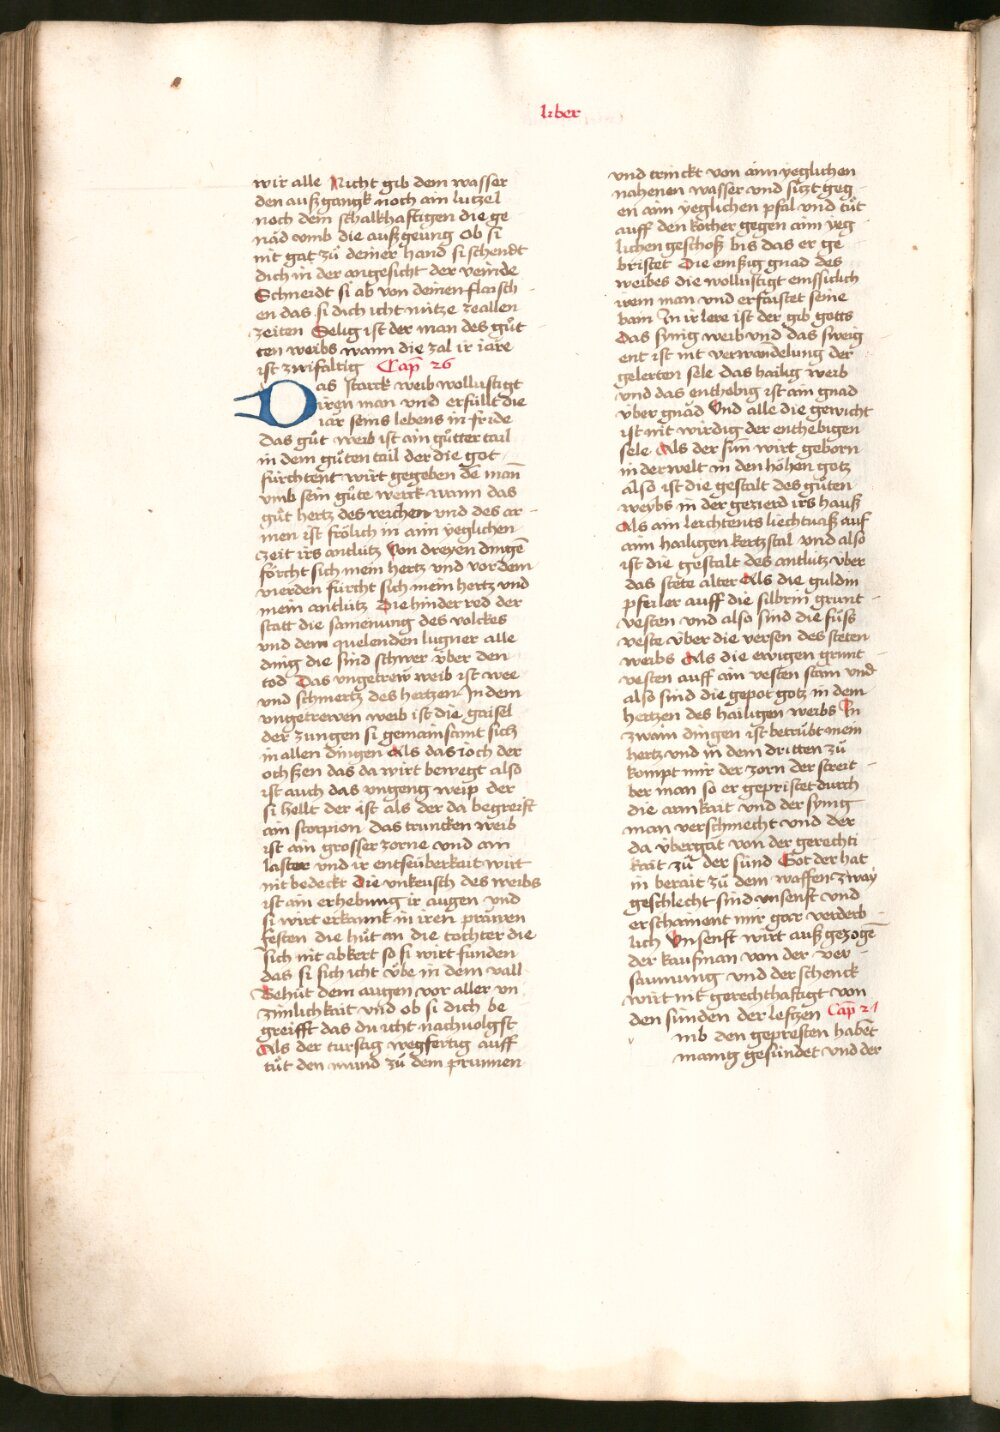 liber
wir alle Nicht gib dem wasser
den außgangk noch ain lutzel
noch dem schalkhafftigen die ge
nad vmb die außgeung Ob si
nit gat zů deiner hand si schendt
dich in der angesicht der veinde
Schneidt si ab von deinen flaisch
en das si dich icht nütze zeallen
zeiten Selig ist der man des gůt
ten weibs wann die zal ir iare
ist zwifaltig Cap 26
Das starck weib wollustigt
iren man vnd erfüllt die
iar seins lebens in fride
das gůt weib ist ain gůtter tail
in dem gůten tail der die got
fürchtent wirt gegeben dē man
vmb sein gůte werck wann das
gůt hertz des reichen vnd des ar
men ist frölich in aim yeglichen
zeit irs antlütz Von dreyen dingē
förcht sich mein hertz vnd vor dem
vierden fürcht sich mein hertz vnd
mein antlütz Die hinder red der
statt die samenung des volckes
vnd dem quelenden lugner alle
ding die sind schwer vber den
tod Das vngetrew weib ist wee
vnd schmertz des hertzen In dem
vngetrewen weib ist die gaisel
der zungen si gemainsamt sich
in allen dingen Als das ioch der
ochßen das da wirt bewegt also
ist auch das vngeng weip der
si hellt der ist als der da begreift
ain scorpion das truncken weib
ist ain grosser zorne vnd ain
laster vnd ir entseüberkait wirt
nit bedeckt Die vnkeusch des weibs
ist ain erhebung ir augen vnd
si wirt erkannt in iren prawen
festen die hüt an die tochter die
sich nit abkert so si wirt funden
das si sich icht vbe in dem vall
Behüt dem augen vor aller vn
zimlichkait vnd ob si dich be
greifft das du icht nachuolgst
Als der turstig wegfertig auff
tůt den mund zů dem prunnen
vnd trinckt von aim yeglichen
nahenen wasser vnd sitzt geg
en aim yeglichen pfal vnd tůt
auff den kocher gegen aim yeg
lichen geschoß bis das er ge
bristet Die emßig gnad des
weibes die wollustigt emssiclich
irem man vnd erfaistet seine
bain In ir lere ist der gib gotts
Das synig weib vnd das sweig
ent ist nit verwandelung der
gelerten sele das hailig weib
vnd das enthebig ist ain gnad
vber gnad Vnd alle die gewicht
ist nit wirdig der enthebigen
sele Als der sun wirt geborn
in der welt in den höhen gotz
also ist die gestalt des gůten
weybs in der gezierd irs hauß
Als ain leichtents liechtuaß auf
aim hailigen kertzstal vnd also
ist die gestalt des antlütz vber
das stete alter Als die guldin
pfeiler auff die silbrin grunt
vesten vnd also sind die füss
veste vber die versen des steten
weibs Als die ewigen grunt
vesten auff ain vesten stain vnd
also sind die gepot gotz in dem
hertzen des hailigen weibs In
zwain dingen ist betrübt mein
hertz vnd in dem dritten zů
kompt mir der zorn der streit
ber man so er gepristet durch
die armkait vnd der synig
man verschmecht vnd der
da vbergat von der gerechti
kait zů der sünd Got der hat
in berait zů dem waffen zway
geschlecht sind vnsenft vnd
erschainent mir gar verderb
lich Vnsenft wirt außgezogē
der kaufman von der ver
saumung vnd der schenck
wirt nit gerechthaftigt von
den sünden der lefftzen Cap 27
v
mb den gepresten habēt
manig gesündet vnd der